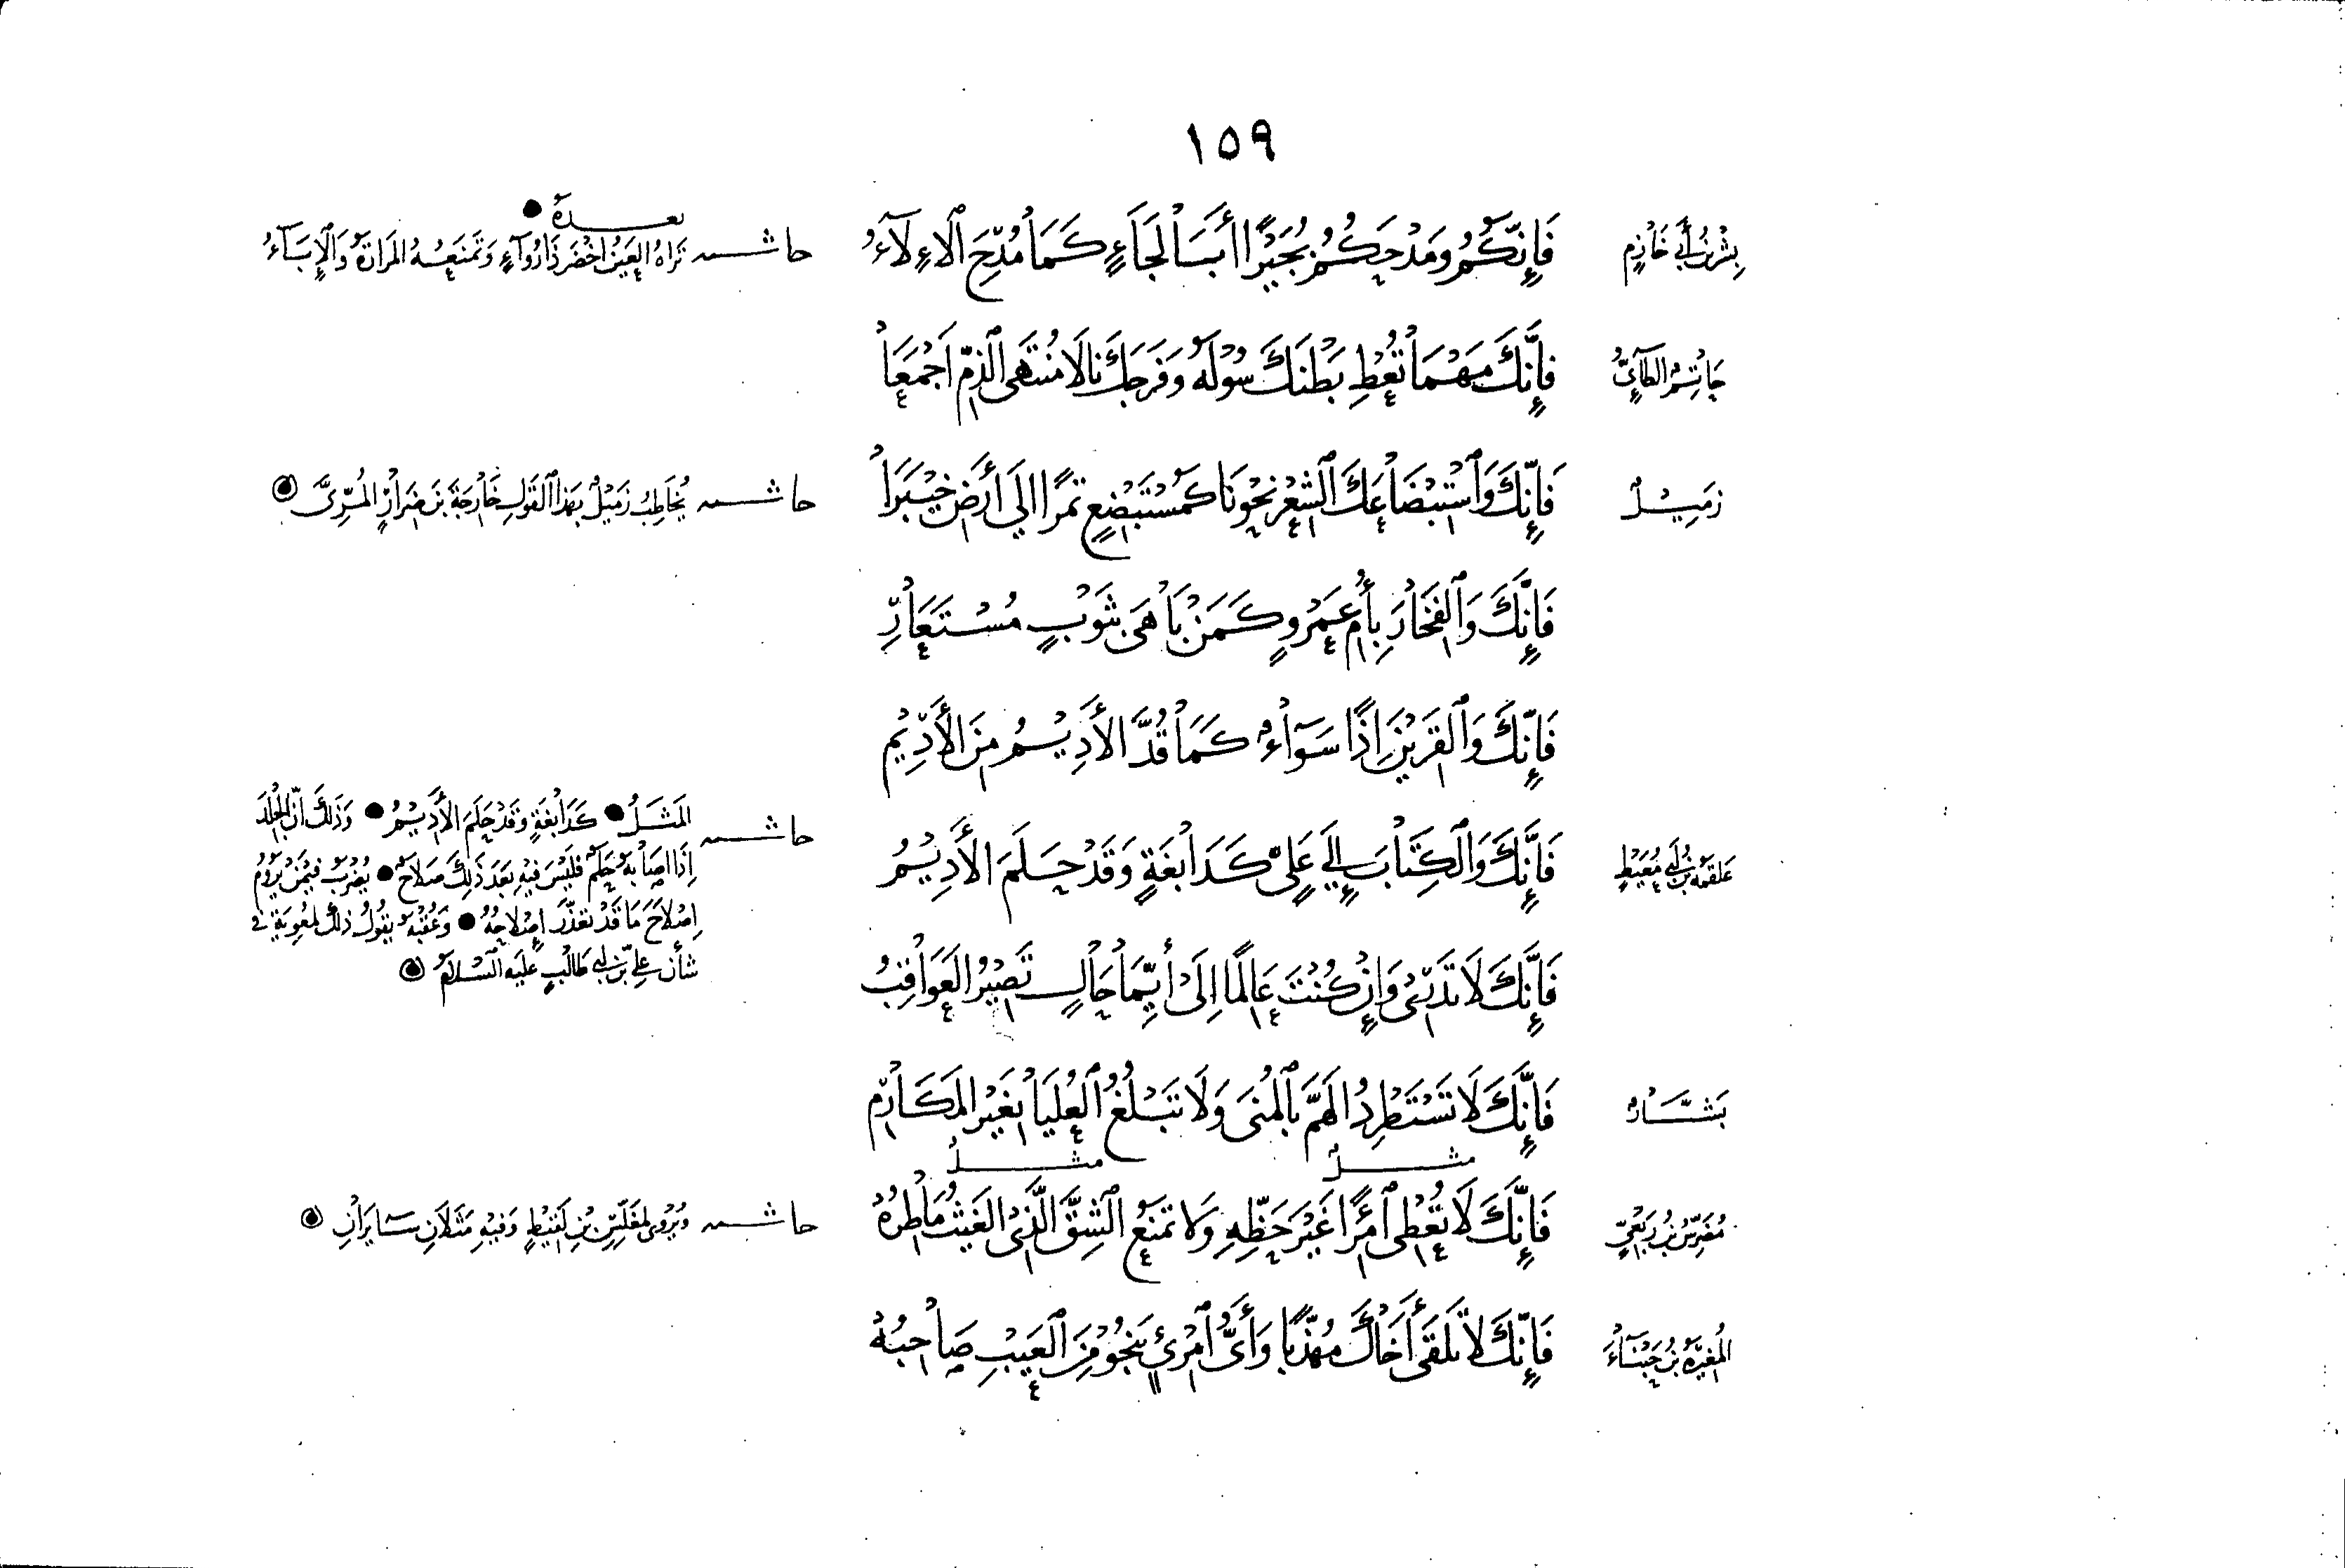 ١٥٩
بِشْرُ بْنُ أَبِي خَازِمٍ
فَإِنَّكُمُ وَمَدْحَكُمُ بُجَيْرًا أَبَا لَجَاءٍ كَمَا مُدِحَ الْآلَاءُ
حاشية
بعده
تَرَاهُ الْعَيْنُ أَخْضَرَ ذَا رُوَآءٍ وَتَمْنَعُهُ الْمَرَارَةُ وَالْإِبَآءُ
حَاتِمُ الطَّآئِيُّ
فَإِنَّكَ مَهْمَا تُعْطِ بَطْنَكَ سُوْلَهُ وَفَرْجَكَ نَالَا مُنْتَهَى الذَّمِّ أَجْمَعَا
زُمَيْلٌ
فَإِنَّكَ وَاسْتِبْضَاعَكَ الشِّعْرَ نَحْوَنَا كَمُسْتَبْضِعٍ تَمْرًا إِلَى أَرْضِ خَيْبَرَا
حاشية
يُخَاطِبُ زُمَيْلٌ بِهَذَا الْقَوْلِ خَارِجَةَ بْنَ ضِرَارٍ الْمُرِّيَّ
فَإِنَّكَ وَالْفَخَارَ بِأُمِّ عَمْرٍو كَمَنْ بَاهَى بِثَوْبٍ مُسْتَعَارِ
فَإِنَّكَ وَالْقَرِيْنَ إِذًا سَوَآءٌ كَمَا قُدَّ الْأَدِيْمُ مِنَ الْأَدِيْمِ
عَلقمة بْنُ أَبِي مُعَيْطٍ
فَإِنَّكَ وَالْكِتَابَ إِلَى عَلِيٍّ كَدَابِغَةٍ وَقَدْ حَلِمَ الْأَدِيْمُ
حاشية
الْمَثَلُ كَدَابِغَةٍ وَقَدْ حَلِمَ الْأَدِيْمُ وَذَلِكَ أَنَّ الْجِلْدَ
إِذَا أَصَابَهُ حَلَمٌ فَلَيْسَ فِيْهِ بَعْدَ ذَلِكَ صَلَاحٌ يُضْرَبُ فِيْمَنْ يَرُوْمُ
إِصْلَاحَ مَا قَدْ تَعَذَّرَ إِصْلَاحُهُ وَعُقْبَةُ يَقُوْلُ ذَلِكَ لِمُعٰوِيَةَ فِي
شَأْنِ عَلِيِّ بْنِ أَبِي طَالِبٍ عَلَيْهِ السَّلَامُ
فَإِنَّكَ لَا تَدْرِي وَإِنْ كُنْتَ عَالِمًا إِلَى أَيِّمَا حَالٍ تَصِيْرُ الْعَوَاقِبُ
بَشَّارٌ
فَإِنَّكَ لَا تَسْتَطْرِدُ الْهَمَّ بِالْمُنَى وَلَا تَبْلُغُ الْعُلْيَا بِغَيْرِ الْمَكَارِمِ
مثل مثل
مُضَرِّسُ بْنُ رِبْعِيٍّ
فَإِنَّكَ لَا تُعْطِي امْرَأً غَيْرَ حَظِّهِ وَلَا تَمْنَعُ الشِّقَّ الَّذِي الْغَيْثُ مَاطِرُهُ
حاشية
وَيُرْوَى لِمُغَلِّسِ بْنِ لَقِيْطٍ وَفِيْهِ مَثَلَانِ سَايِرَانِ
الْمُغِيْرَةُ بْنُ حَبْنَآءَ
فَإِنَّكَ لَا تَلْقَى أَخَاكَ مُهَذَّبًا وَأَيُّ امْرِئٍ يَنْجُوْ مِنَ الْعَيْبِ صَاحِبُهُ